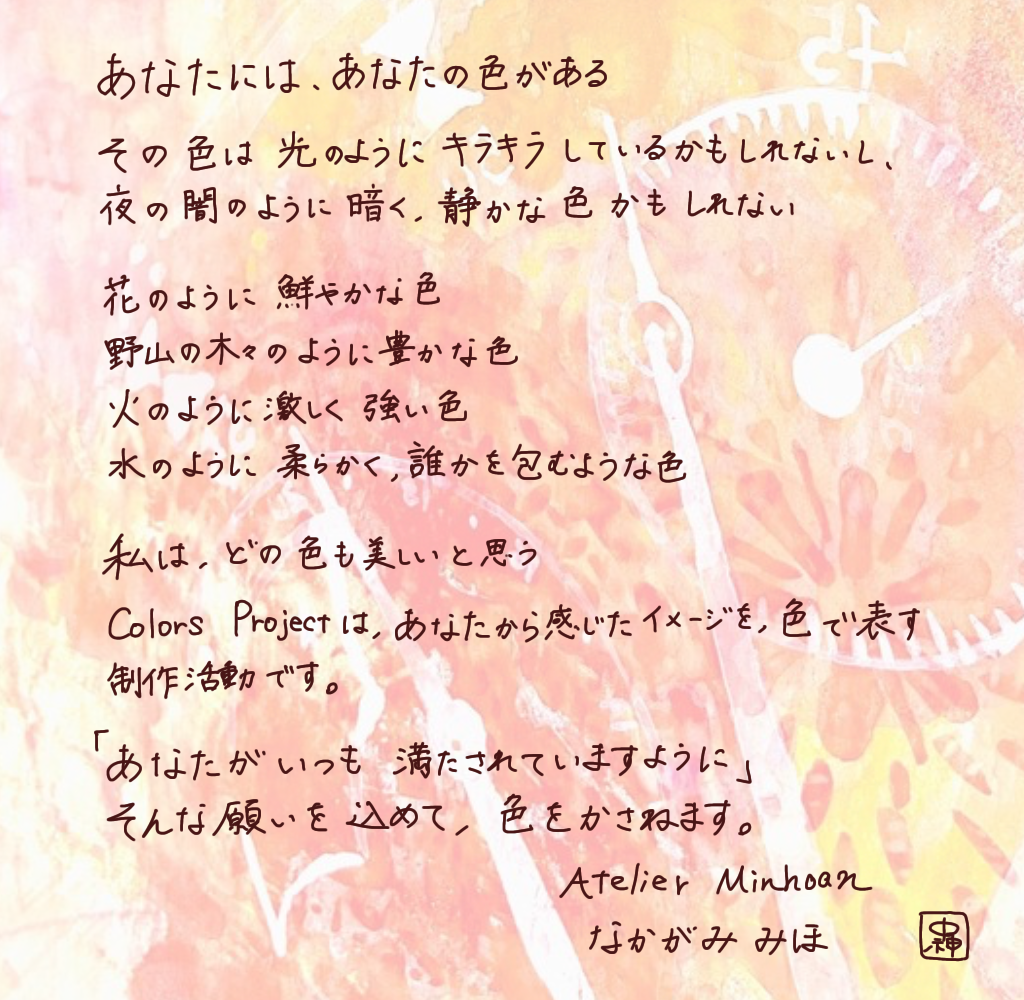 あなたには、あなたの色がある
その色は 光のように キラキラ しているかもしれないし、
夜の闇のように 暗く、静かな 色かも しれない
花のように 鮮やかな色
野山の木々のように豊かな色
火のように激しく 強い色
水のように 柔らかく、誰かを包むような色
私は、どの色も美しいと思う
Colors Projectは、あなたから感じたイメージを、色で表す
制作活動です。
「あなたがいつも 満たされていますように」
そんな願いを込めて、色をかさねます。
Atelier Minhoan
なかがみ みほ
中神